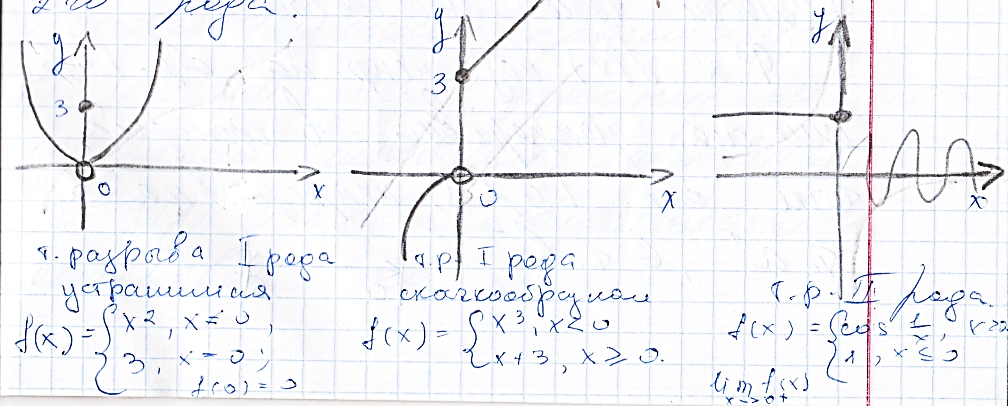 2го рода.
y
3
0
x
т. разрыва I рода
устранимая
f(x) = { x², x ≠ 0,
3, x = 0;
f(0) = 0
y
3
0
x
т.р. I рода
скачкообразная
f(x) = { x³, x < 0
x+3, x ≥ 0.
y
x
т.р. II рода.
f(x) = { cos 1/x, x >
1, x ≤ 0
lim f(x)
x→0+